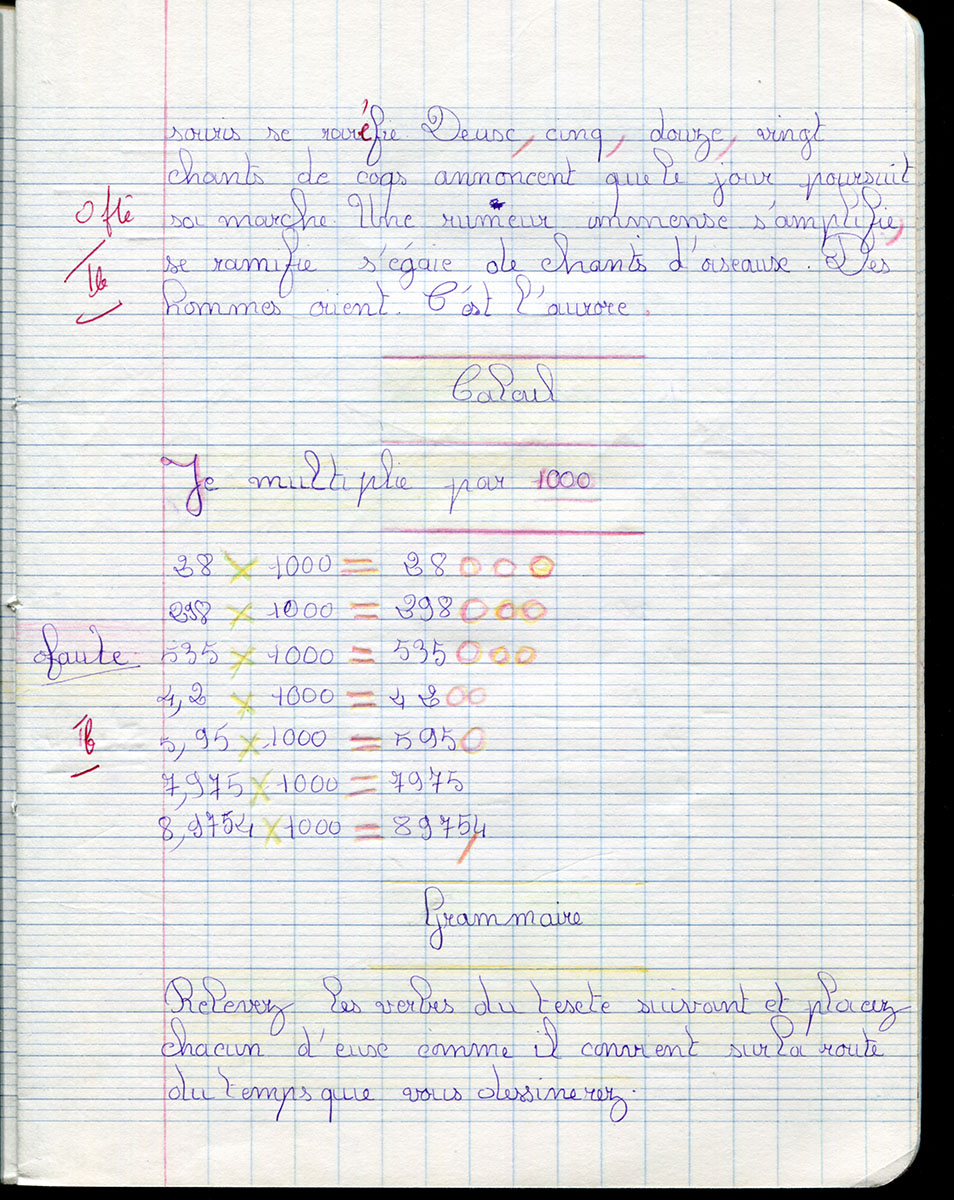 souris se raréfie. Deux, cinq, douze, vingt
chants de coqs annoncent que le jour poursuit
sa marche. Une rumeur immense s'amplifie,
se ramifie s'égaie de chants d'oiseaux. Des
hommes crient. C'est l'aurore.
0 fte
Tb
Calcul
Je multiplie par 1000
38 × 1000 = 38000
398 × 1000 = 398000
535 × 1000 = 535000
4,2 × 1000 = 4200
5,95 × 1000 = 5950
7,975 × 1000 = 7975
8,9754 × 1000 = 8975,4
0 faute
Tb
Grammaire
Relevez les verbes du texte suivant et placez
chacun d'eux comme il convient sur la route
du temps que vous dessinerez.